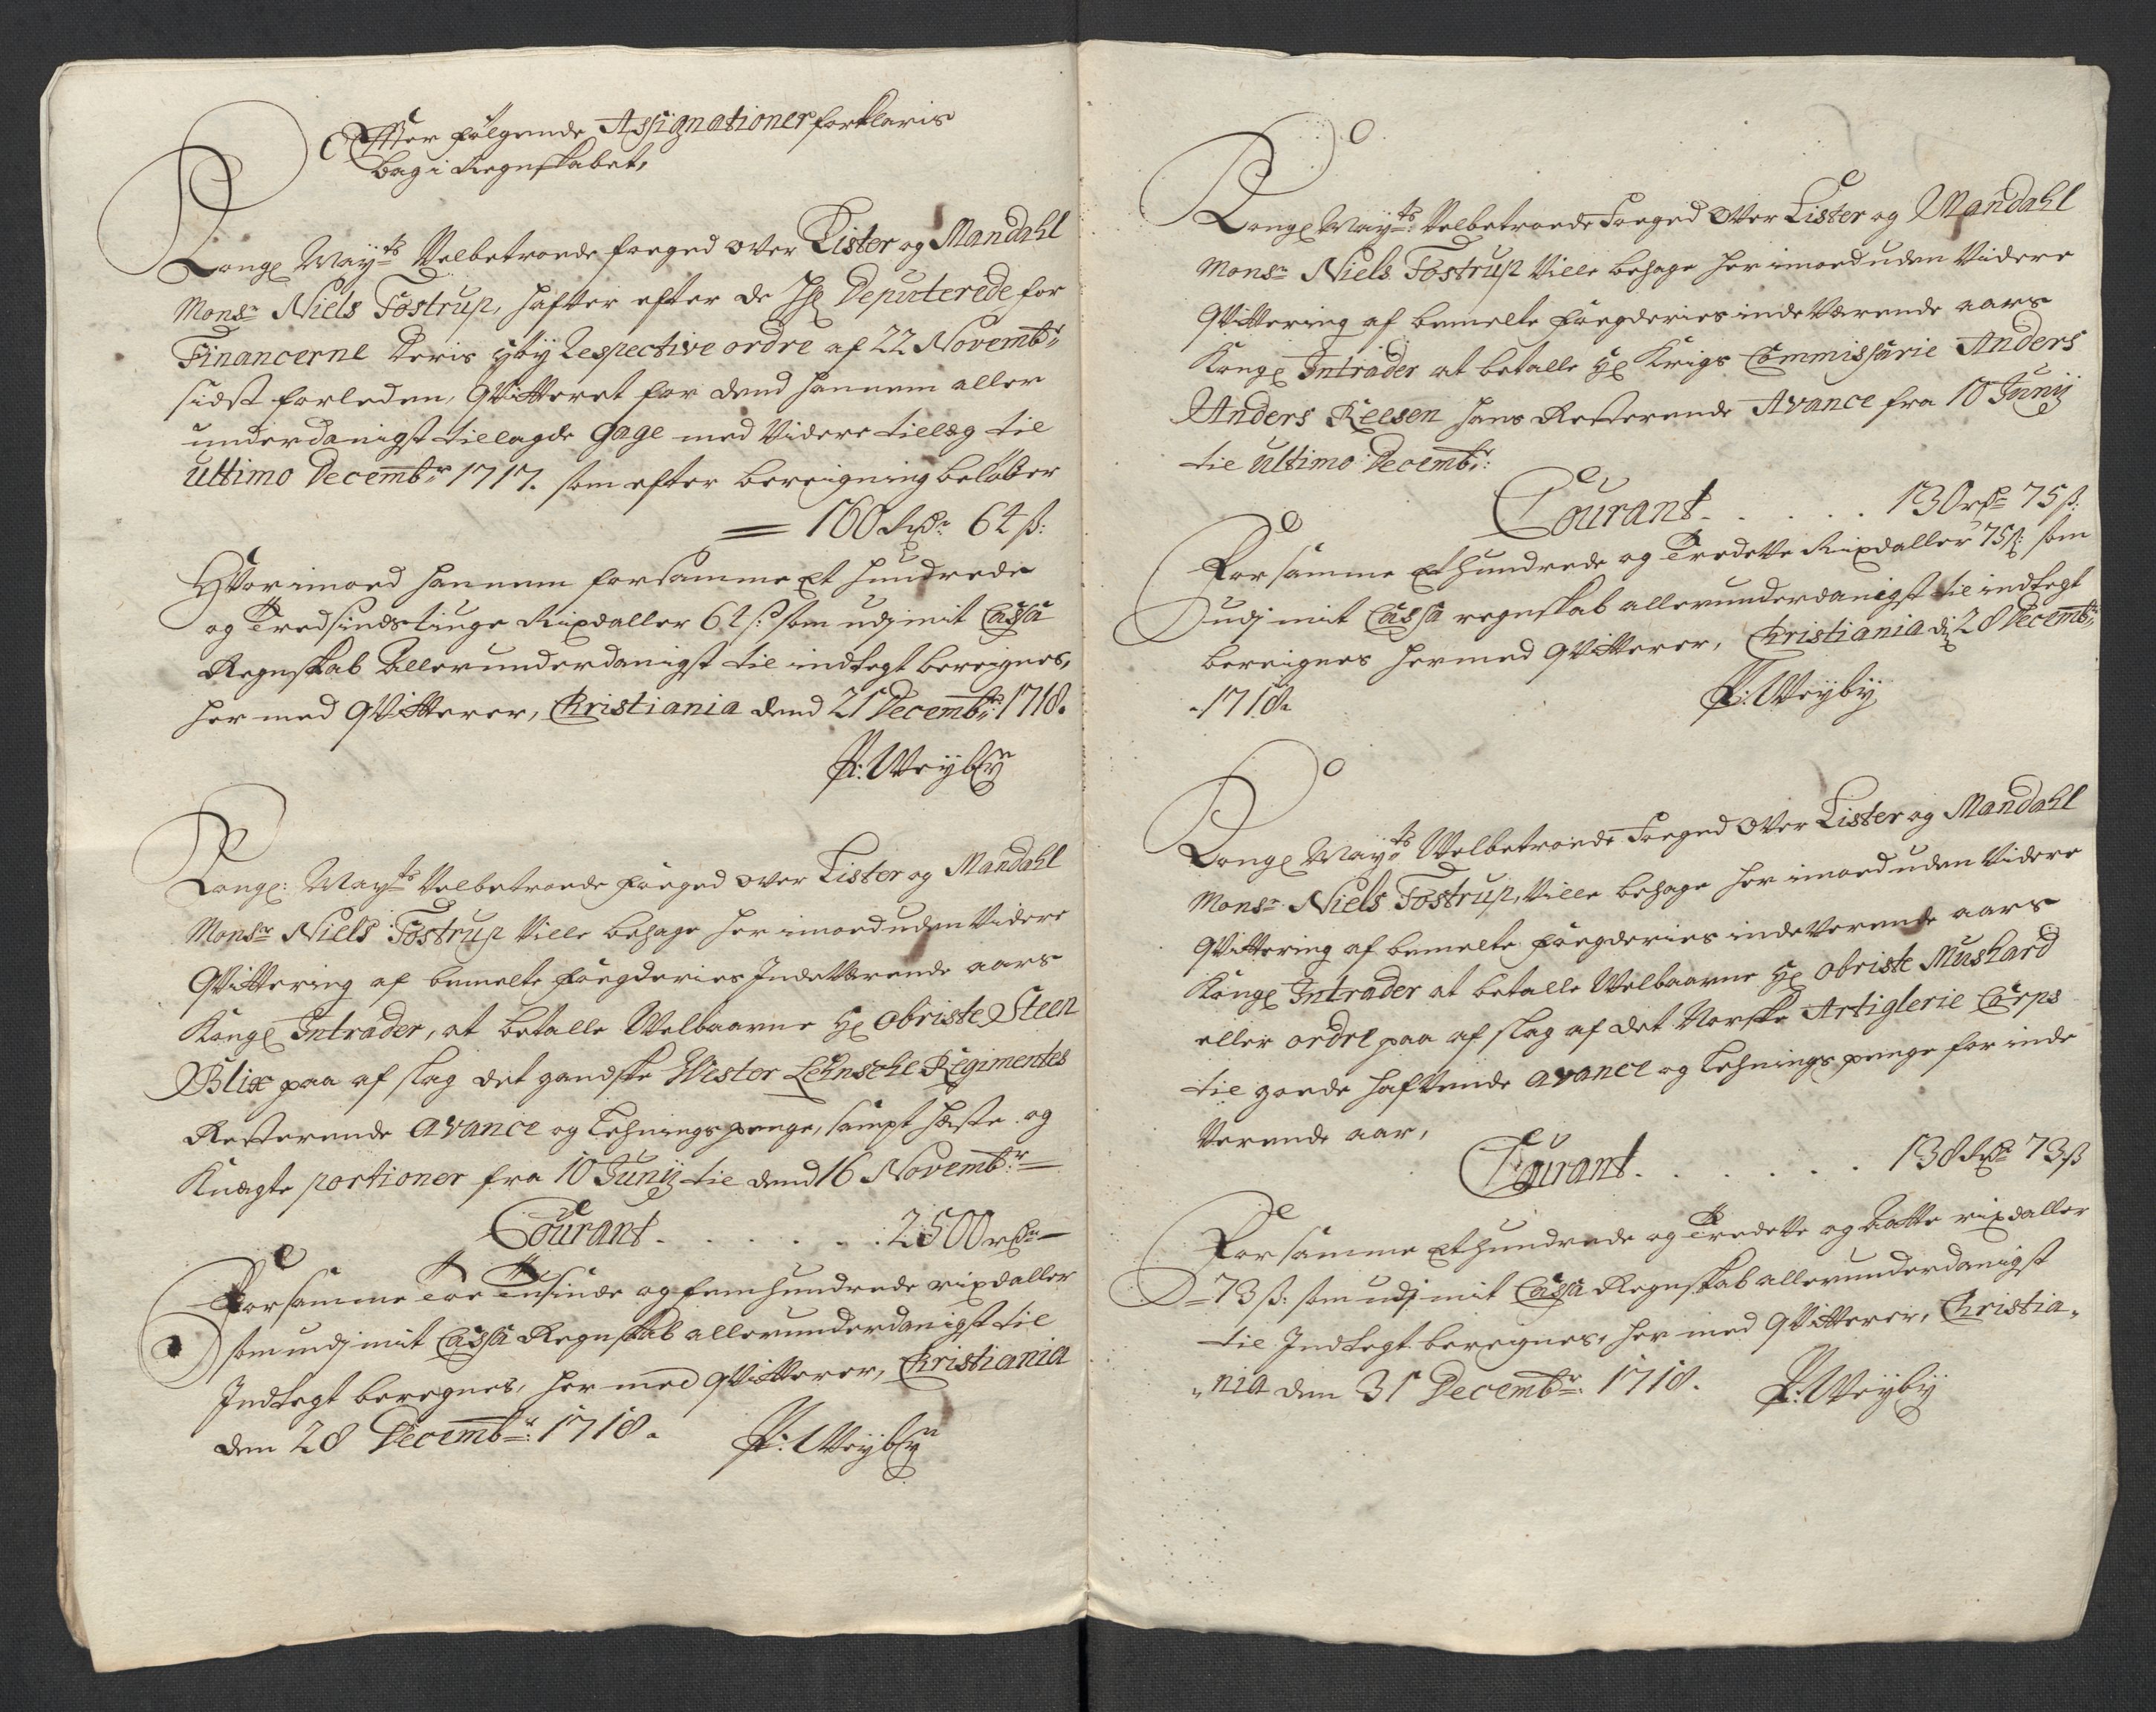 Efter følgende Assignationer forklaris
bag i Regnskabet,
Kongl Mayts Velbetroede foeged over Lister og Mandahl
Monsr Niels Tostrup, hafter efter de Hl Deputerede for
Financerne deris Respective ordre af 22 Novembr
sidst forleden, qvitteret for dend hannem aller
underdanigst tillagde gage med Videre tillæg til
ultimo Decembr 1717. som efter bereigning beløber
= 160 Rdr 64 ß:
Hvorimoed hannem for samme Et hundrede
og Tredsindstiuge Rixdaller 64 ß: som udj mit Cassa
Regnskab allerunderdanigst til indtegt bereignes,
her med qvitterer, Christiania dend 21 Decembr: 1718.
P: Weyby
Kongl: Mayts Velbetroede foeged over Lister og Mandahl
Monsr Niels Tostrup Ville behage her imoed uden Videre
Qvittering af bemelte foegderies Indeværende aars
Kongl Intrader, at betalle Welbaarne Hl Obriste Steen
Blix paa af slag det gandske Wester Lehnsche Regimentes
Resterende avance og Lehnings penge, sampt heste og
Knegte portioner fra 10 Junij til dend 16 Novembr:
Courant . . . . . . 2500 rdr
For samme Toe Tusinde og femhundrede rixdaller
som udj mit Cassa Regnskab allerunderdanigst til
Indtegt beregnes, her med qvitterer, Christiania
den 28 Decembr: 1718. P: Weyby
Kongl Mayts: Velbetroede Foeged over Lister og Mandahl
Monsr Niels Tostrup Ville behage her imoed uden Videre
qvittering af bemelte foegderies indeværende aars
Kongl Intrader at betalle Hl Krigs Commissarie Anders
Anders Reesen hans Resterende Avance fra 10 Junij
til ultimo Decembr:
Courant . . . . . 130 rdr 75 ß:
For samme Et hundrede og Tredette Rixdaller 75 ß: som
udj mit Cassa regnskab allerunderdanigst til indtegt
bereignes hermed qvitterer, Christiania d 28 Decembr:
1718. P: Weyby
Kongl Mayts Welbetroede Foeged over Lister og Mandahl
Monsr Niels Tostrup, Ville behage her imoed uden Videre
qvittering af bemelte foegderies indeverende aars
Kongl Intrader at betalle Welbaarne Hl Obriste Mushard
eller ordre paa af slag af det Norske Artiglerie Corps
til goede haftende avance og Lehnings penge for inde
Verende aar,
Courant . . . . . . 138 Rdr 73 ß
For samme Et hundrede og Tredette og aatte rixdaller
73 ß: som udj mit Cassa Regnskab allerunderdanigst
til Indtegt beregnes, her med qvitterer, Christia-
nia den 31 Decembr: 1718. P: Weyby